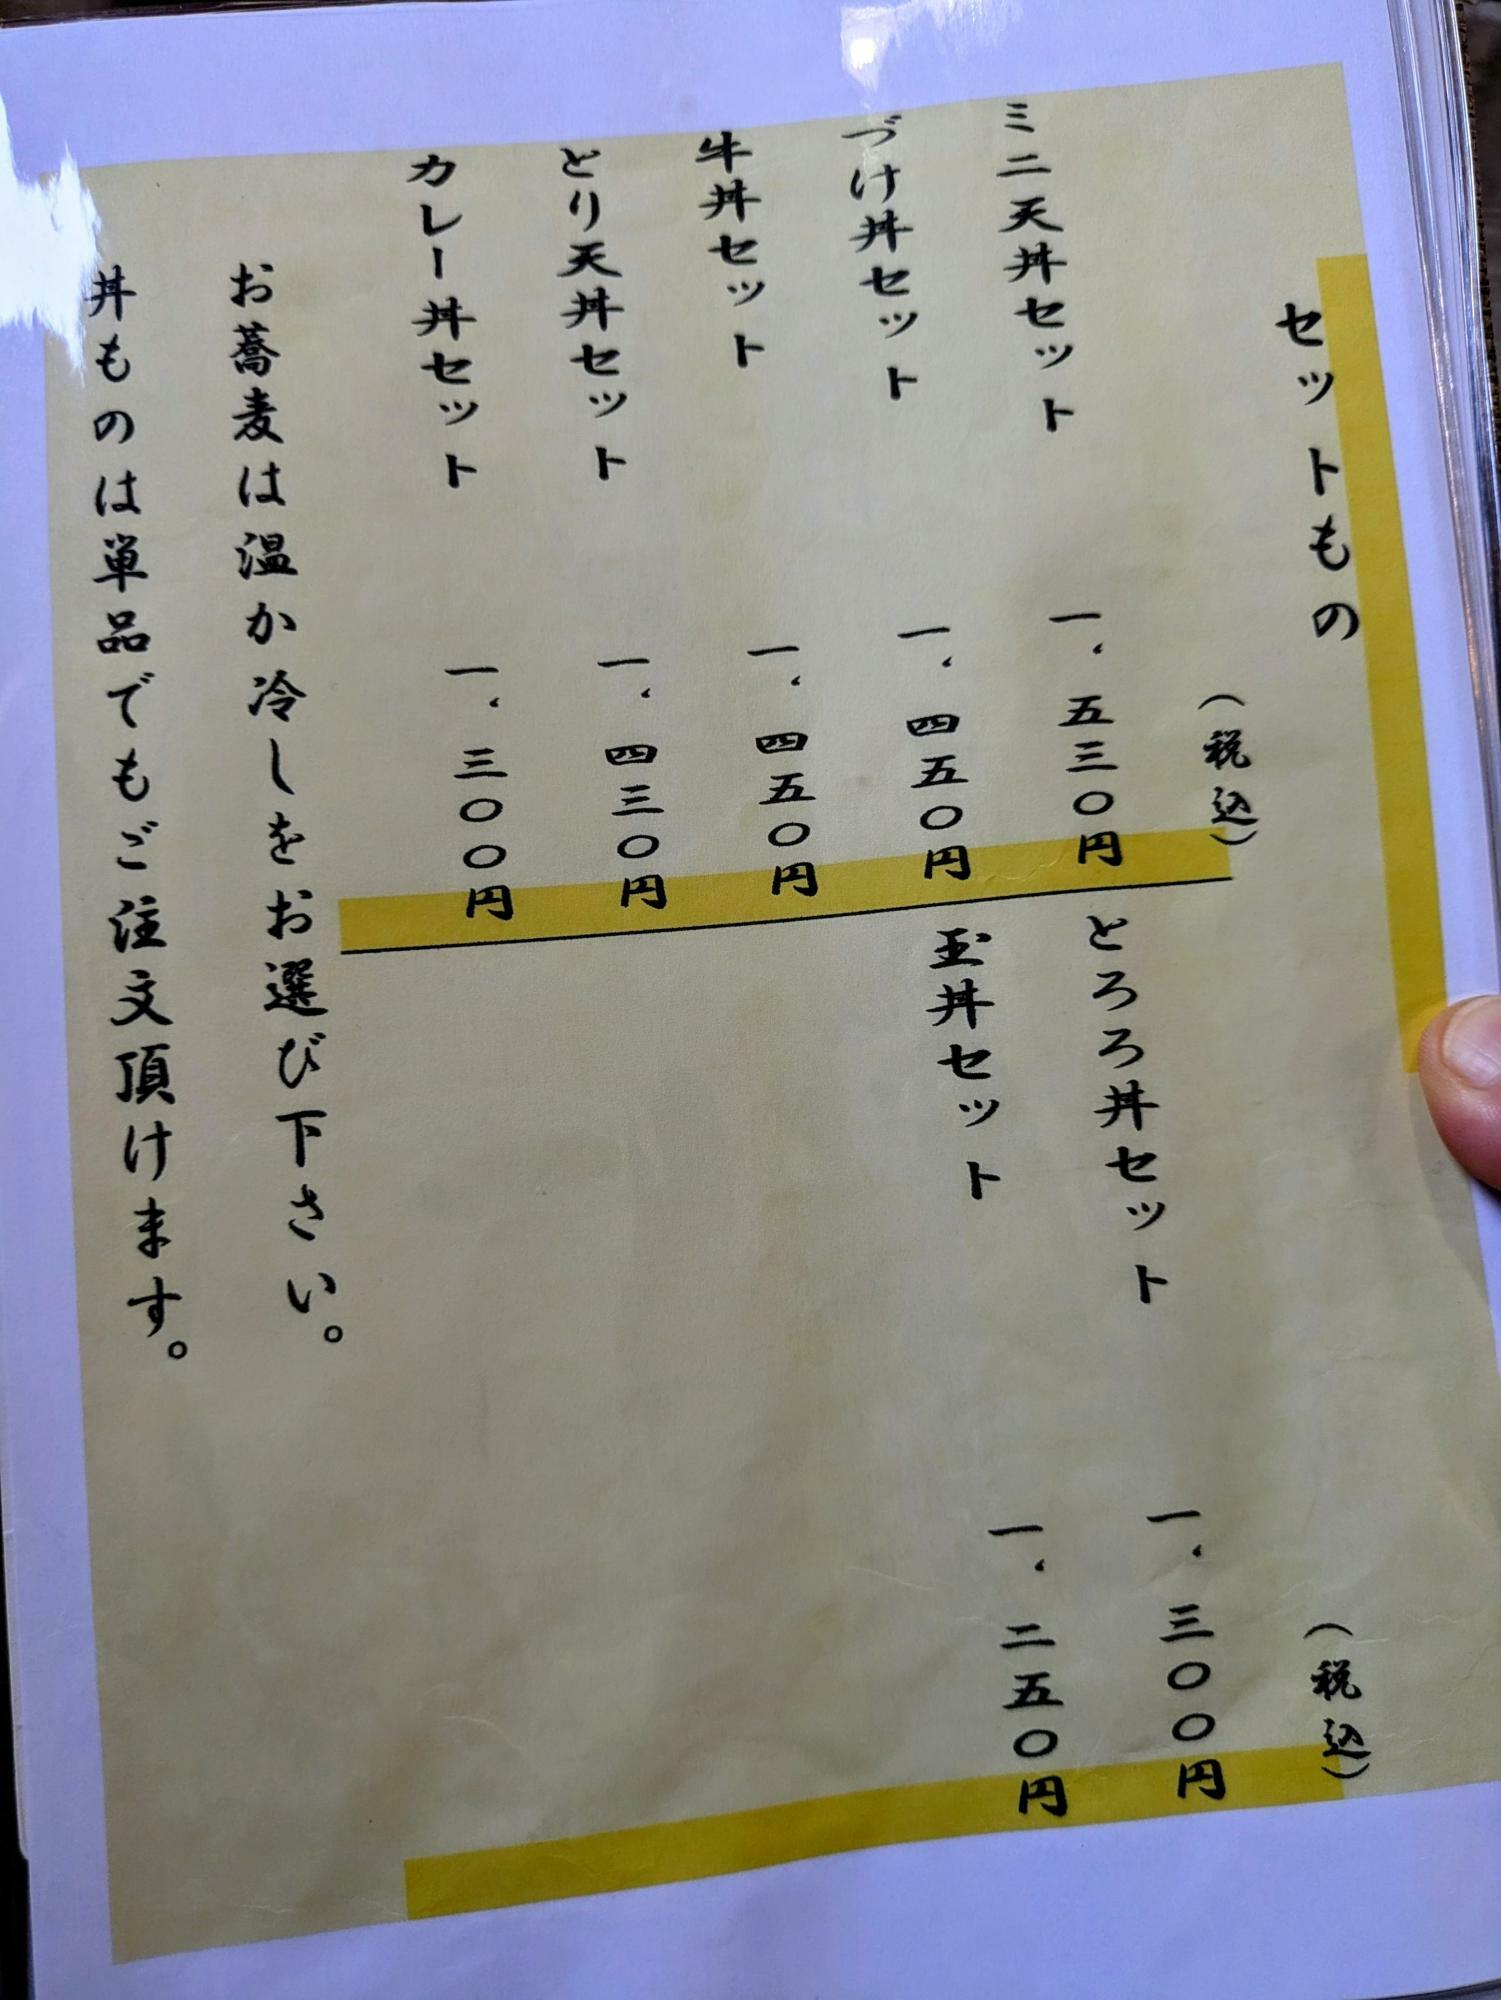 セットもの
（税込）
ミニ天丼セット 一、五三〇円
づけ丼セット 一、四五〇円
牛丼セット 一、四五〇円
とり天丼セット 一、四三〇円
カレー丼セット 一、三〇〇円
（税込）
とろろ丼セット 一、三〇〇円
玉丼セット 一、二五〇円
お蕎麦は温か冷しをお選び下さい。
丼ものは単品でもご注文頂けます。